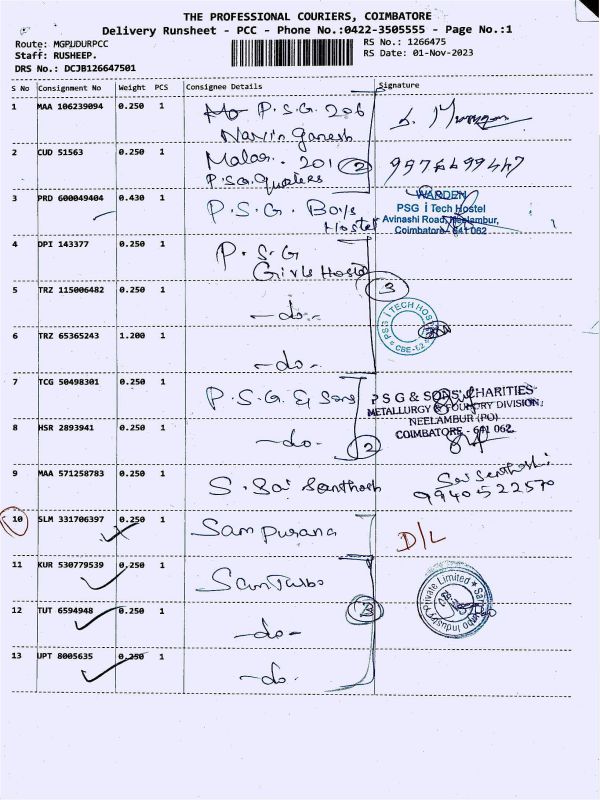 THE PROFESSIONAL COURIERS, COIMBATORE
Delivery Runsheet - PCC - Phone No.:0422-3505555 - Page No.:1
Route: MGPUDURPCC
RS No.: 1266475
Staff: RUSHEEP.
RS Date: 01-Nov-2023
DRS No.: DCJB126647501
S No Consignment No Weight PCS Consignee Details Signature
1 MAA 106239094 0.250 1 P.S.G. 206
Navin Ganesh
2 CUD 51563 0.250 1 Malar. 201 2
P.S.G. Quaters
3 PRD 600049404 0.430 1 P.S.G. Boys
Hostel
WARDEN
PSG i Tech Hostel
Avinashi Road, Neelambur,
Coimbatore - 641 062
4 DPI 143377 0.250 1 P.S.G
Girls Hostel
5 TRZ 115006482 0.250 1 -do-
3
6 TRZ 65365243 1.200 1 -do-
PSG i TECH HOSTEL
CBE-62
7 TCG 50498301 0.250 1 P.S.G. & Sons
P S G & SONS' CHARITIES
METALLURGY & FOUNDRY DIVISION,
NEELAMBUR (PO)
COIMBATORE - 641 062.
8 HSR 2893941 0.250 1 -do- 2
9 MAA 571258783 0.250 1 S. Sai Santhosh
9940522570
10 SLM 331706397 0.250 1 Sampurana D/L
11 KUR 530779539 0.250 1 Santurbo
Private Limited
12 TUT 6594948 0.250 1 -do-
13 UPT 8005635 0.250 1 -do-